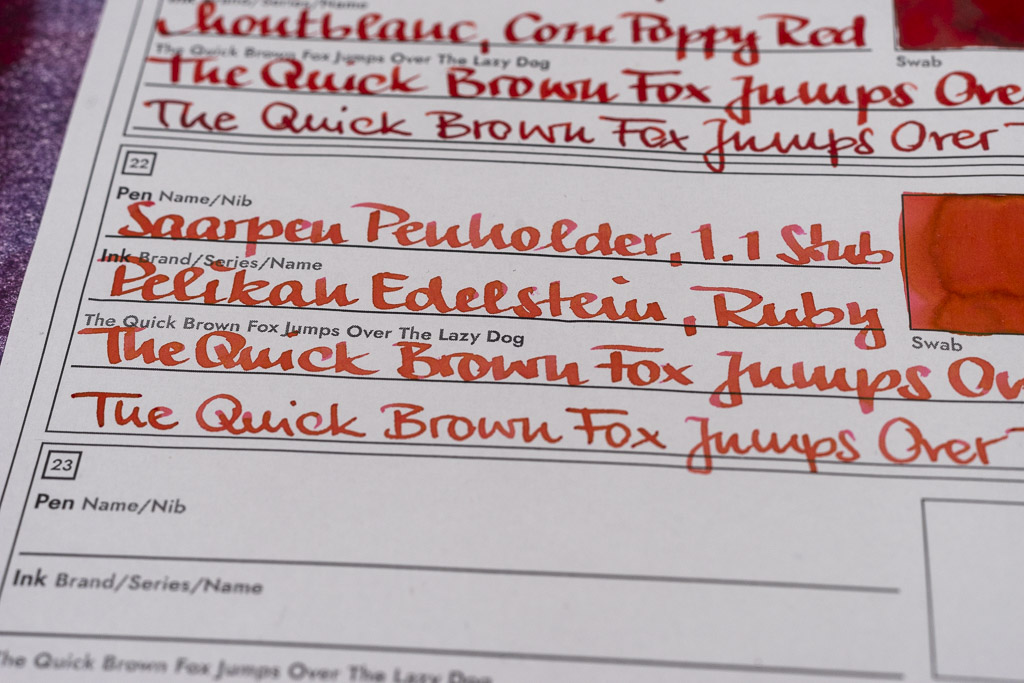 Montblanc, Corn Poppy Red
Swab
The Quick Brown Fox Jumps Over The Lazy Dog
The Quick Brown Fox Jumps Over
The Quick Brown Fox Jumps Over
22
Pen Name/Nib
Saarpen Penholder, 1.1 Stub
Ink Brand/Series/Name
Pelikan Edelstein, Ruby
Swab
The Quick Brown Fox Jumps Over The Lazy Dog
The Quick Brown Fox Jumps Ov
The Quick Brown Fox Jumps Over T
23
Pen Name/Nib
Ink Brand/Series/Name
The Quick Brown Fox Jumps Over The Lazy Dog